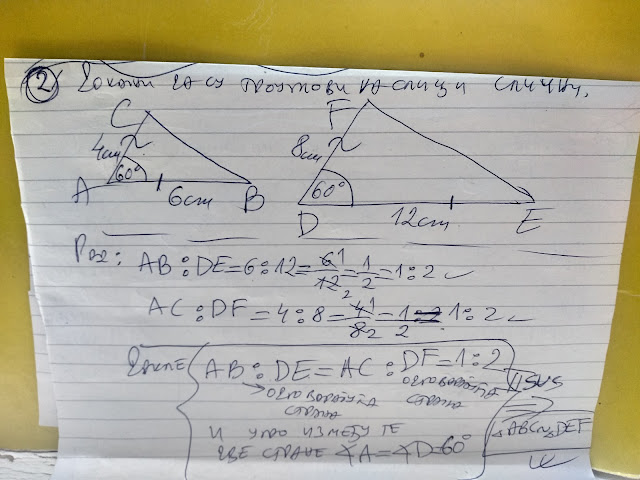 ② Докажи да су троуглови на слици слични.
C F
4cm 8cm
60° 60°
A 6cm B D 12cm E
Рез: AB:DE=6:12=6/12=1/2=1:2
AC:DF=4:8=4/8=1/2=1:2
Дакле AB:DE=AC:DF=1:2
одговарајућа страна одговарајућа страна
и угао између те
две стране ∢A=∢D=60°
SUS
⇒
△ABC~△DEF